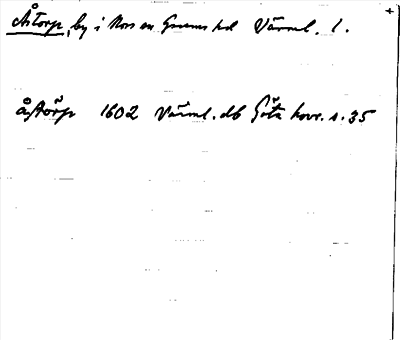 Åstorp, by i Nors sn Grums hd Värml. l.
åstörp 1602 Värml. db Göta hovr. s. 35